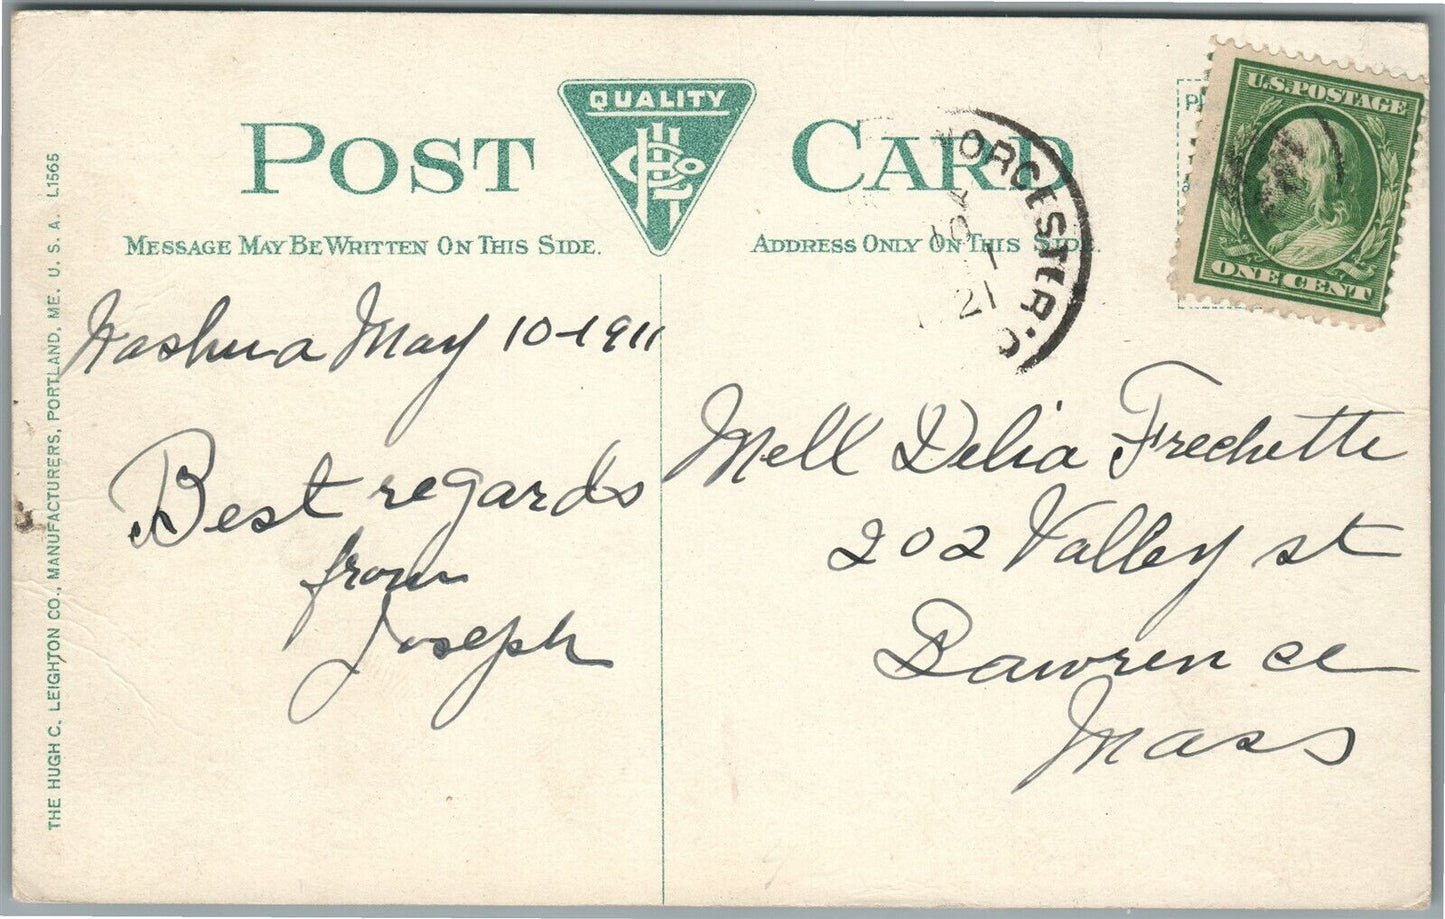 QUALITY
POST CARD
MESSAGE MAY BE WRITTEN ON THIS SIDE.
ADDRESS ONLY ON THIS SIDE.
U.S. POSTAGE
ONE CENT
ORCESTER
21
Nashua May 10-1911
Best regards
from
Joseph
Mell Delia Frechette
202 Valley st
Lawrence
Mass
THE HUGH C. LEIGHTON CO., MANUFACTURERS, PORTLAND, ME. U. S. A. L1565